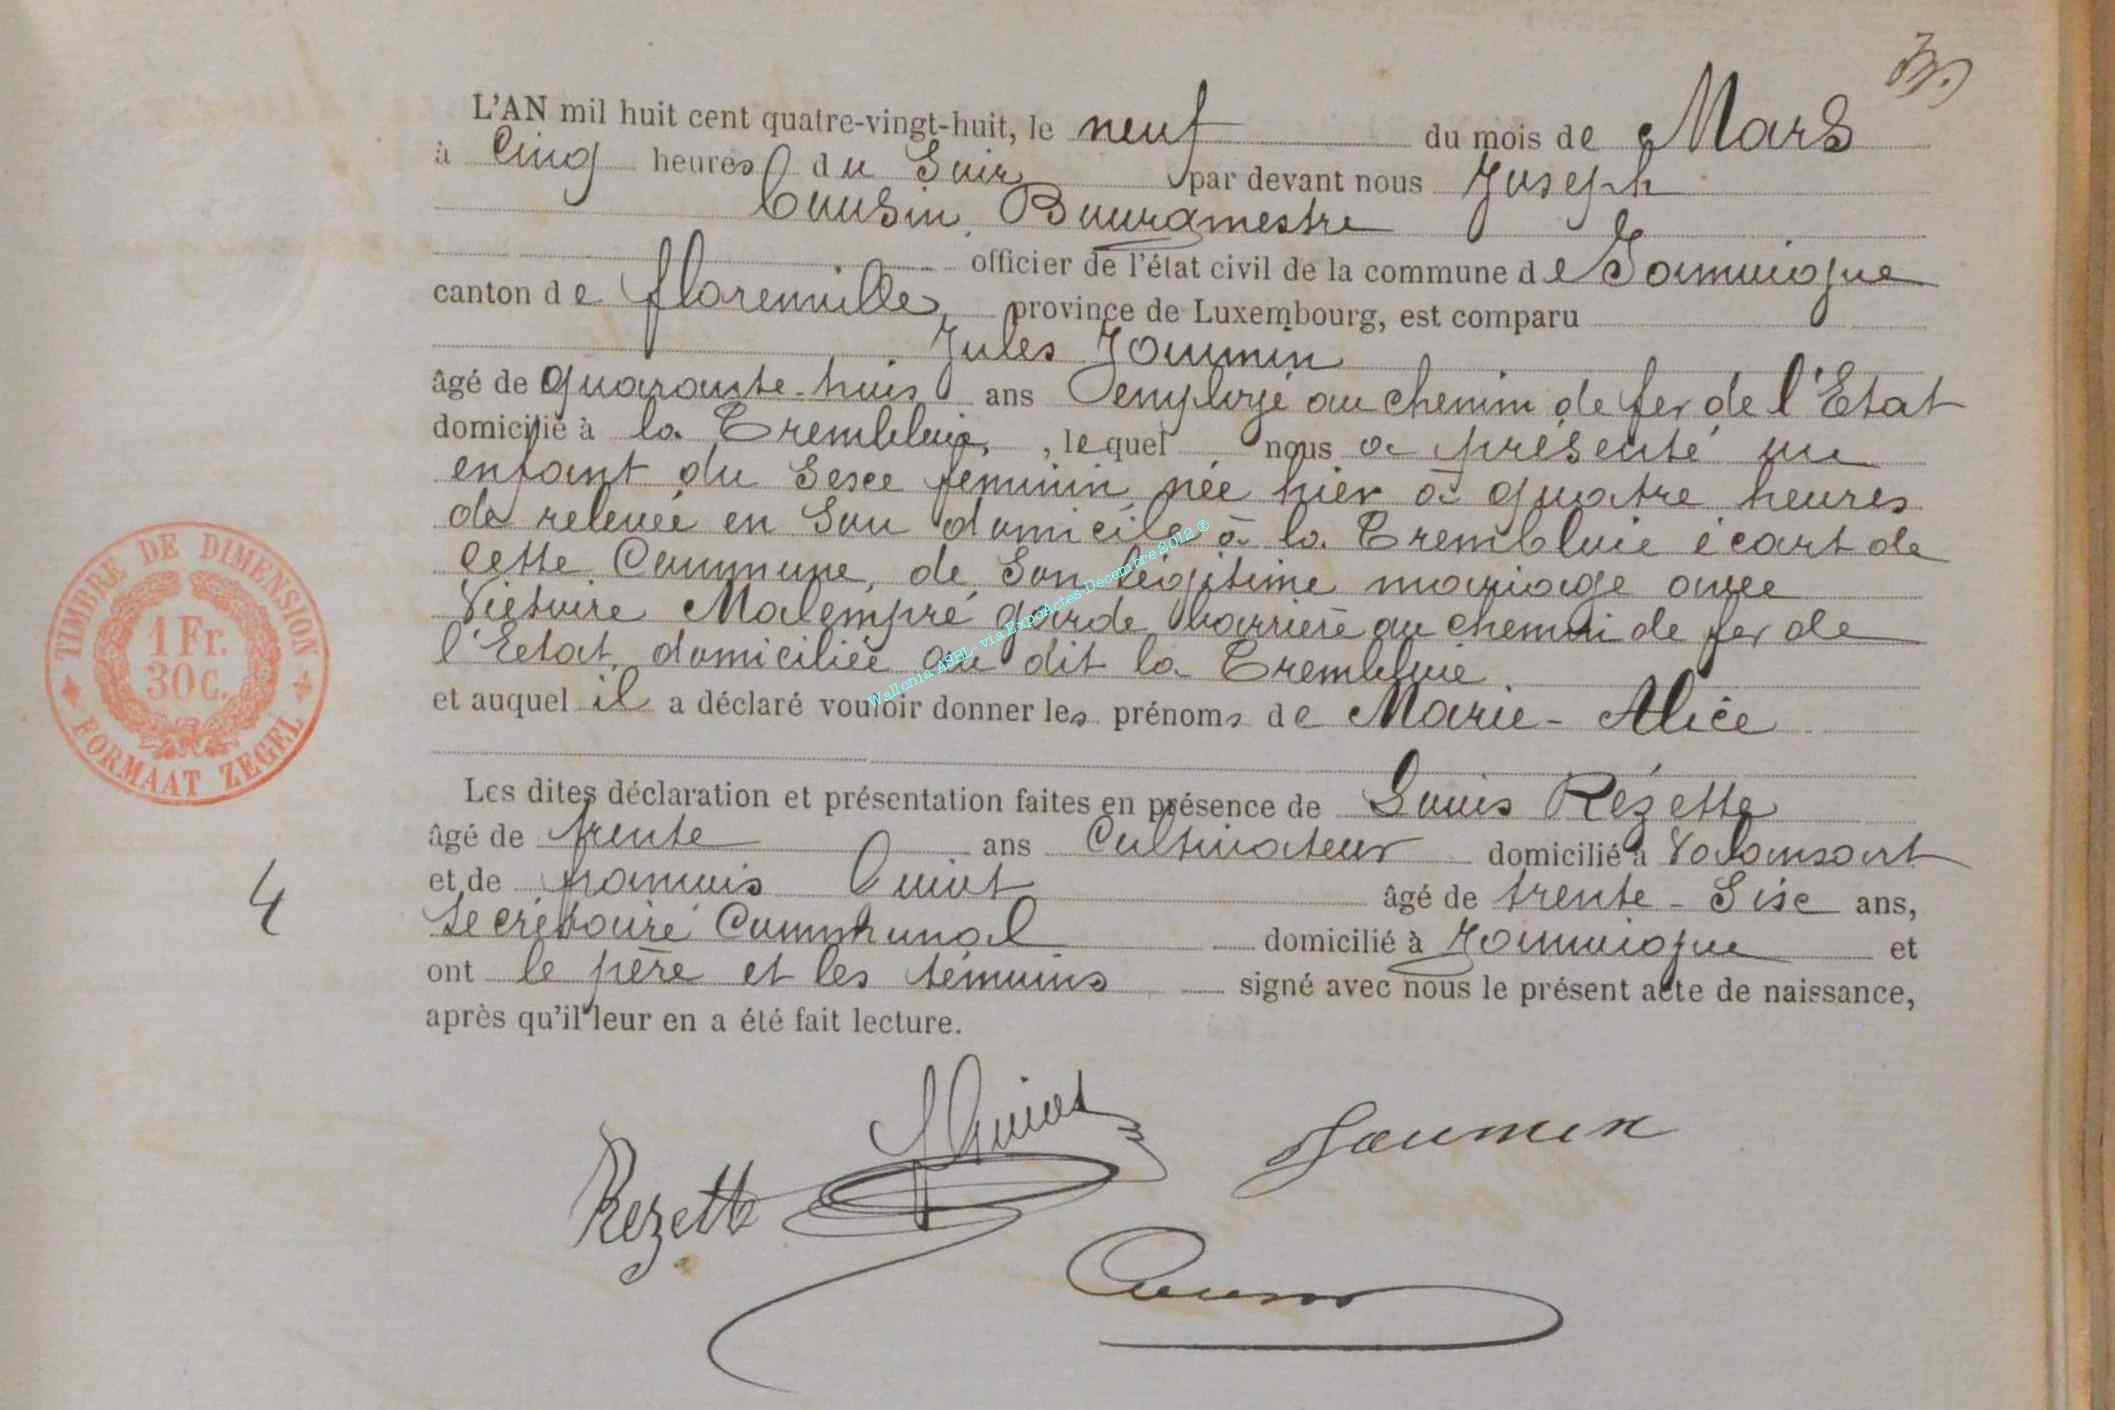 L'AN mil huit cent quatre-vingt-huit, le neuf du mois de Mars
à Cinq heures du Soir par devant nous Joseph
Cousin, Bourgmestre
officier de l'état civil de la commune de Jamoigne
canton de florenville, province de Luxembourg, est comparu
Jules Jaumin
âgé de quarante-huit ans employé au chemin de fer de l'Etat
domicilié à la Trembloie, , lequel nous a présenté un
enfant du Sexe feminin née hier à quatre heures
de relevée en Son domicile à la Trembloie écart de
Cette Commune, de Son légitime mariage avec
Victoire Malempré garde barrière au chemin de fer de
l'Etat domiciliée au dit la Trembloie.
et auquel il a déclaré vouloir donner les prénoms de Marie-Alice
Les dites déclaration et présentation faites en présence de Louis Rézette
âgé de trente ans Cultivateur domicilié à Valansart
et de francois Guiot âgé de trente-Six ans,
Secrétaire Communal domicilié à Jamoigne et
ont le père et les témoins signé avec nous le présent acte de naissance,
après qu'il leur en a été fait lecture.
TIMBRE DE DIMENSION
1 Fr.
30 C.
FORMAAT ZEGEL
4
Wallonia ASBL via ExpoActes-Décembre 2012 ®
Rezette
Guiot
Jaumin
Cousin